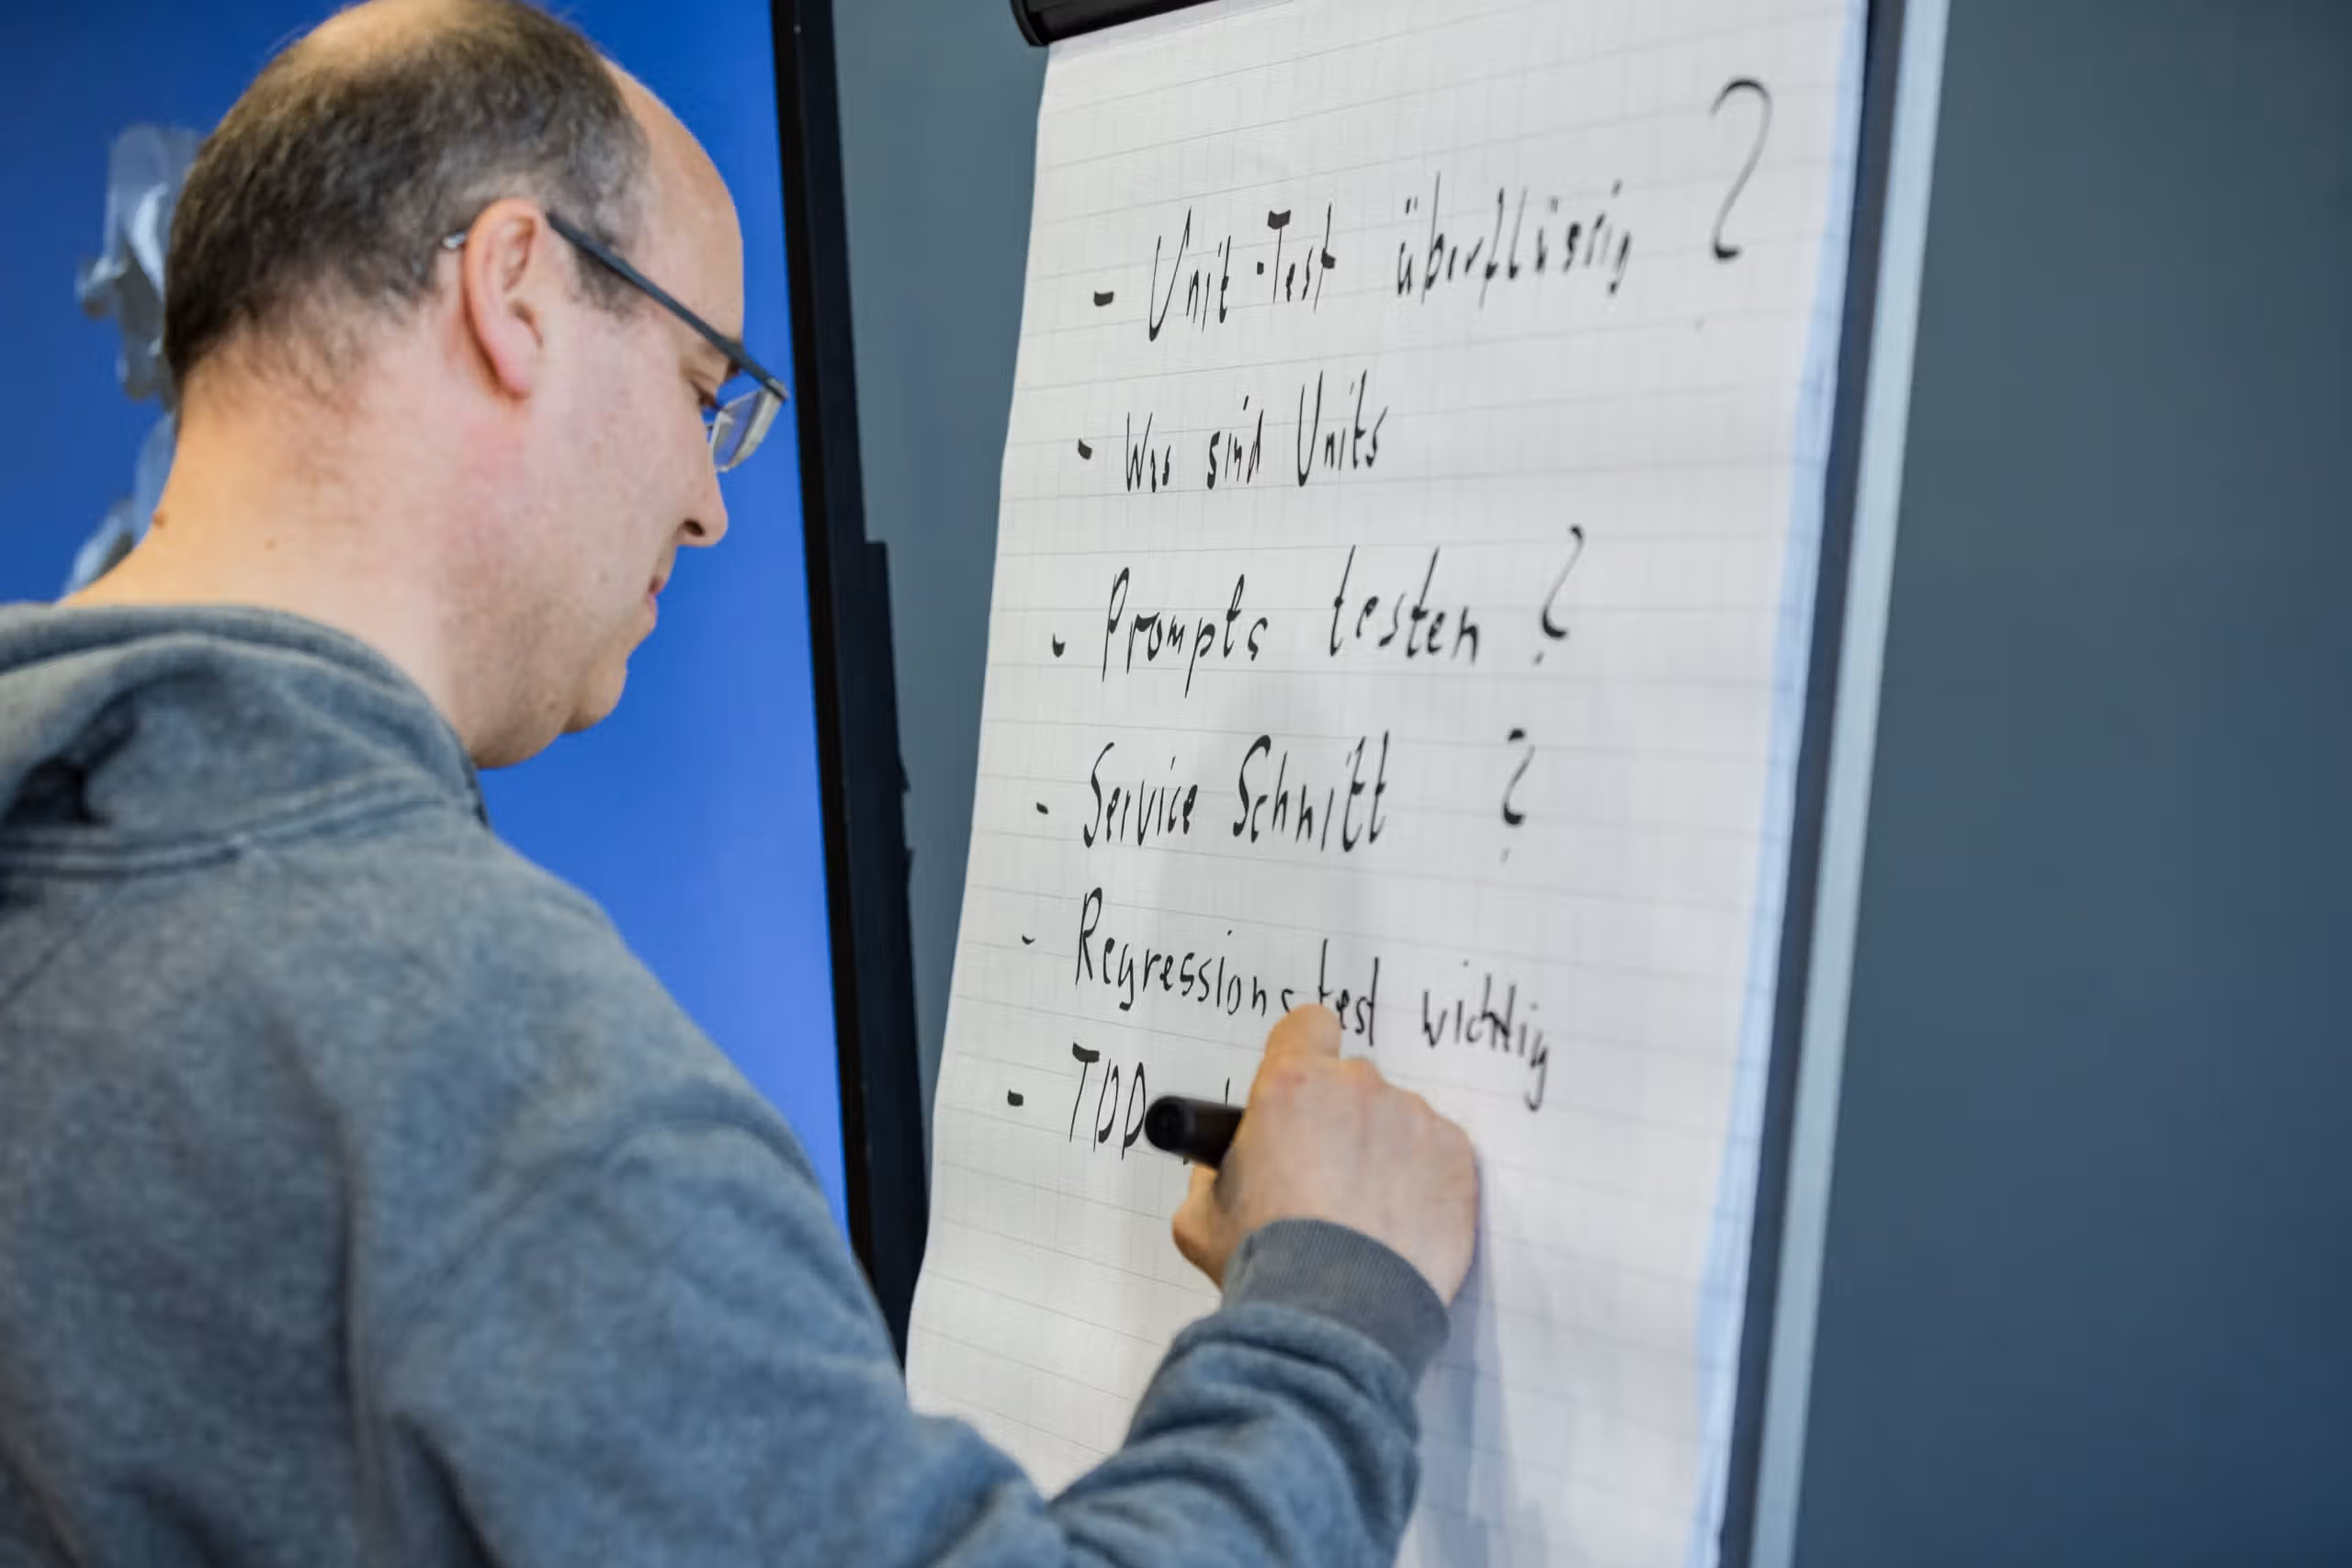 - Unit-Test überflüssig ?
- Was sind Units
- Prompts testen ?
- Service Schnitt ?
- Regressionstest wichtig
- TDD